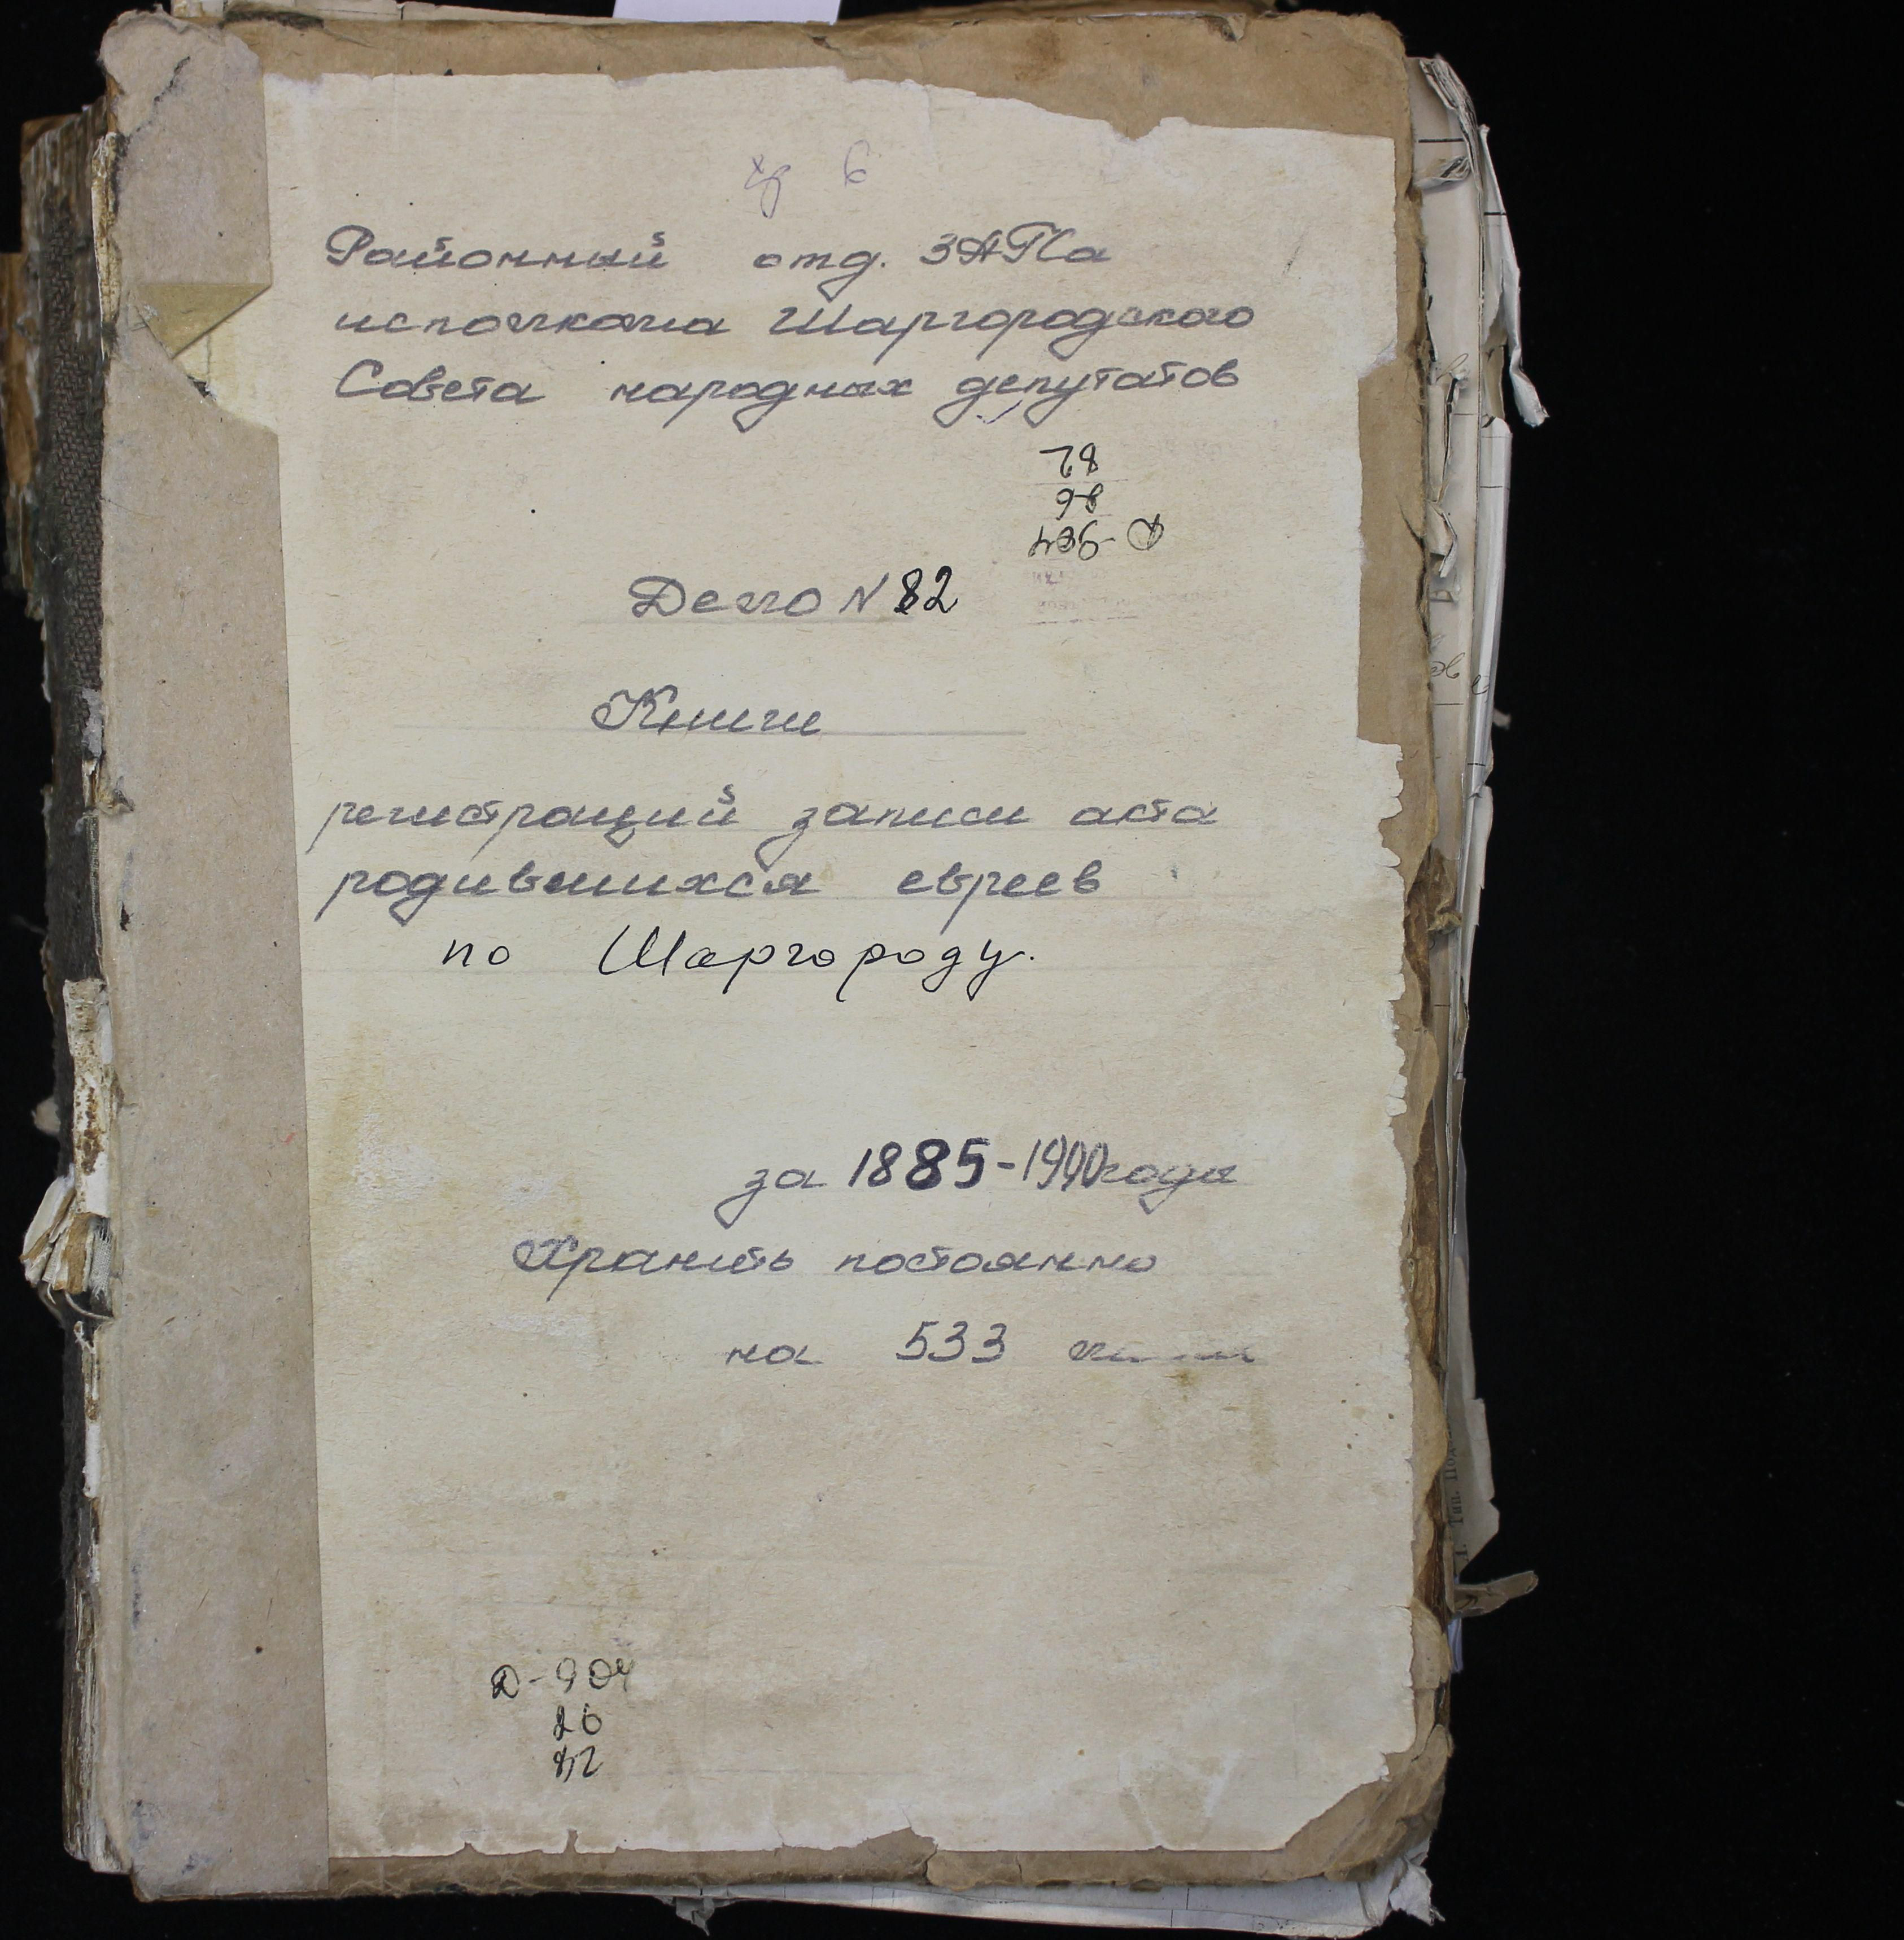 Районный отд. ЗАГСа
исполкома Шаргородского
Совета народных депутатов
82
26
Д-904
Дело N 82
Книги
регистраций записи акта
родившихся евреев
по Шаргороду.
за 1885-1900 года
Хранить постоянно
на 533
Д-904
26